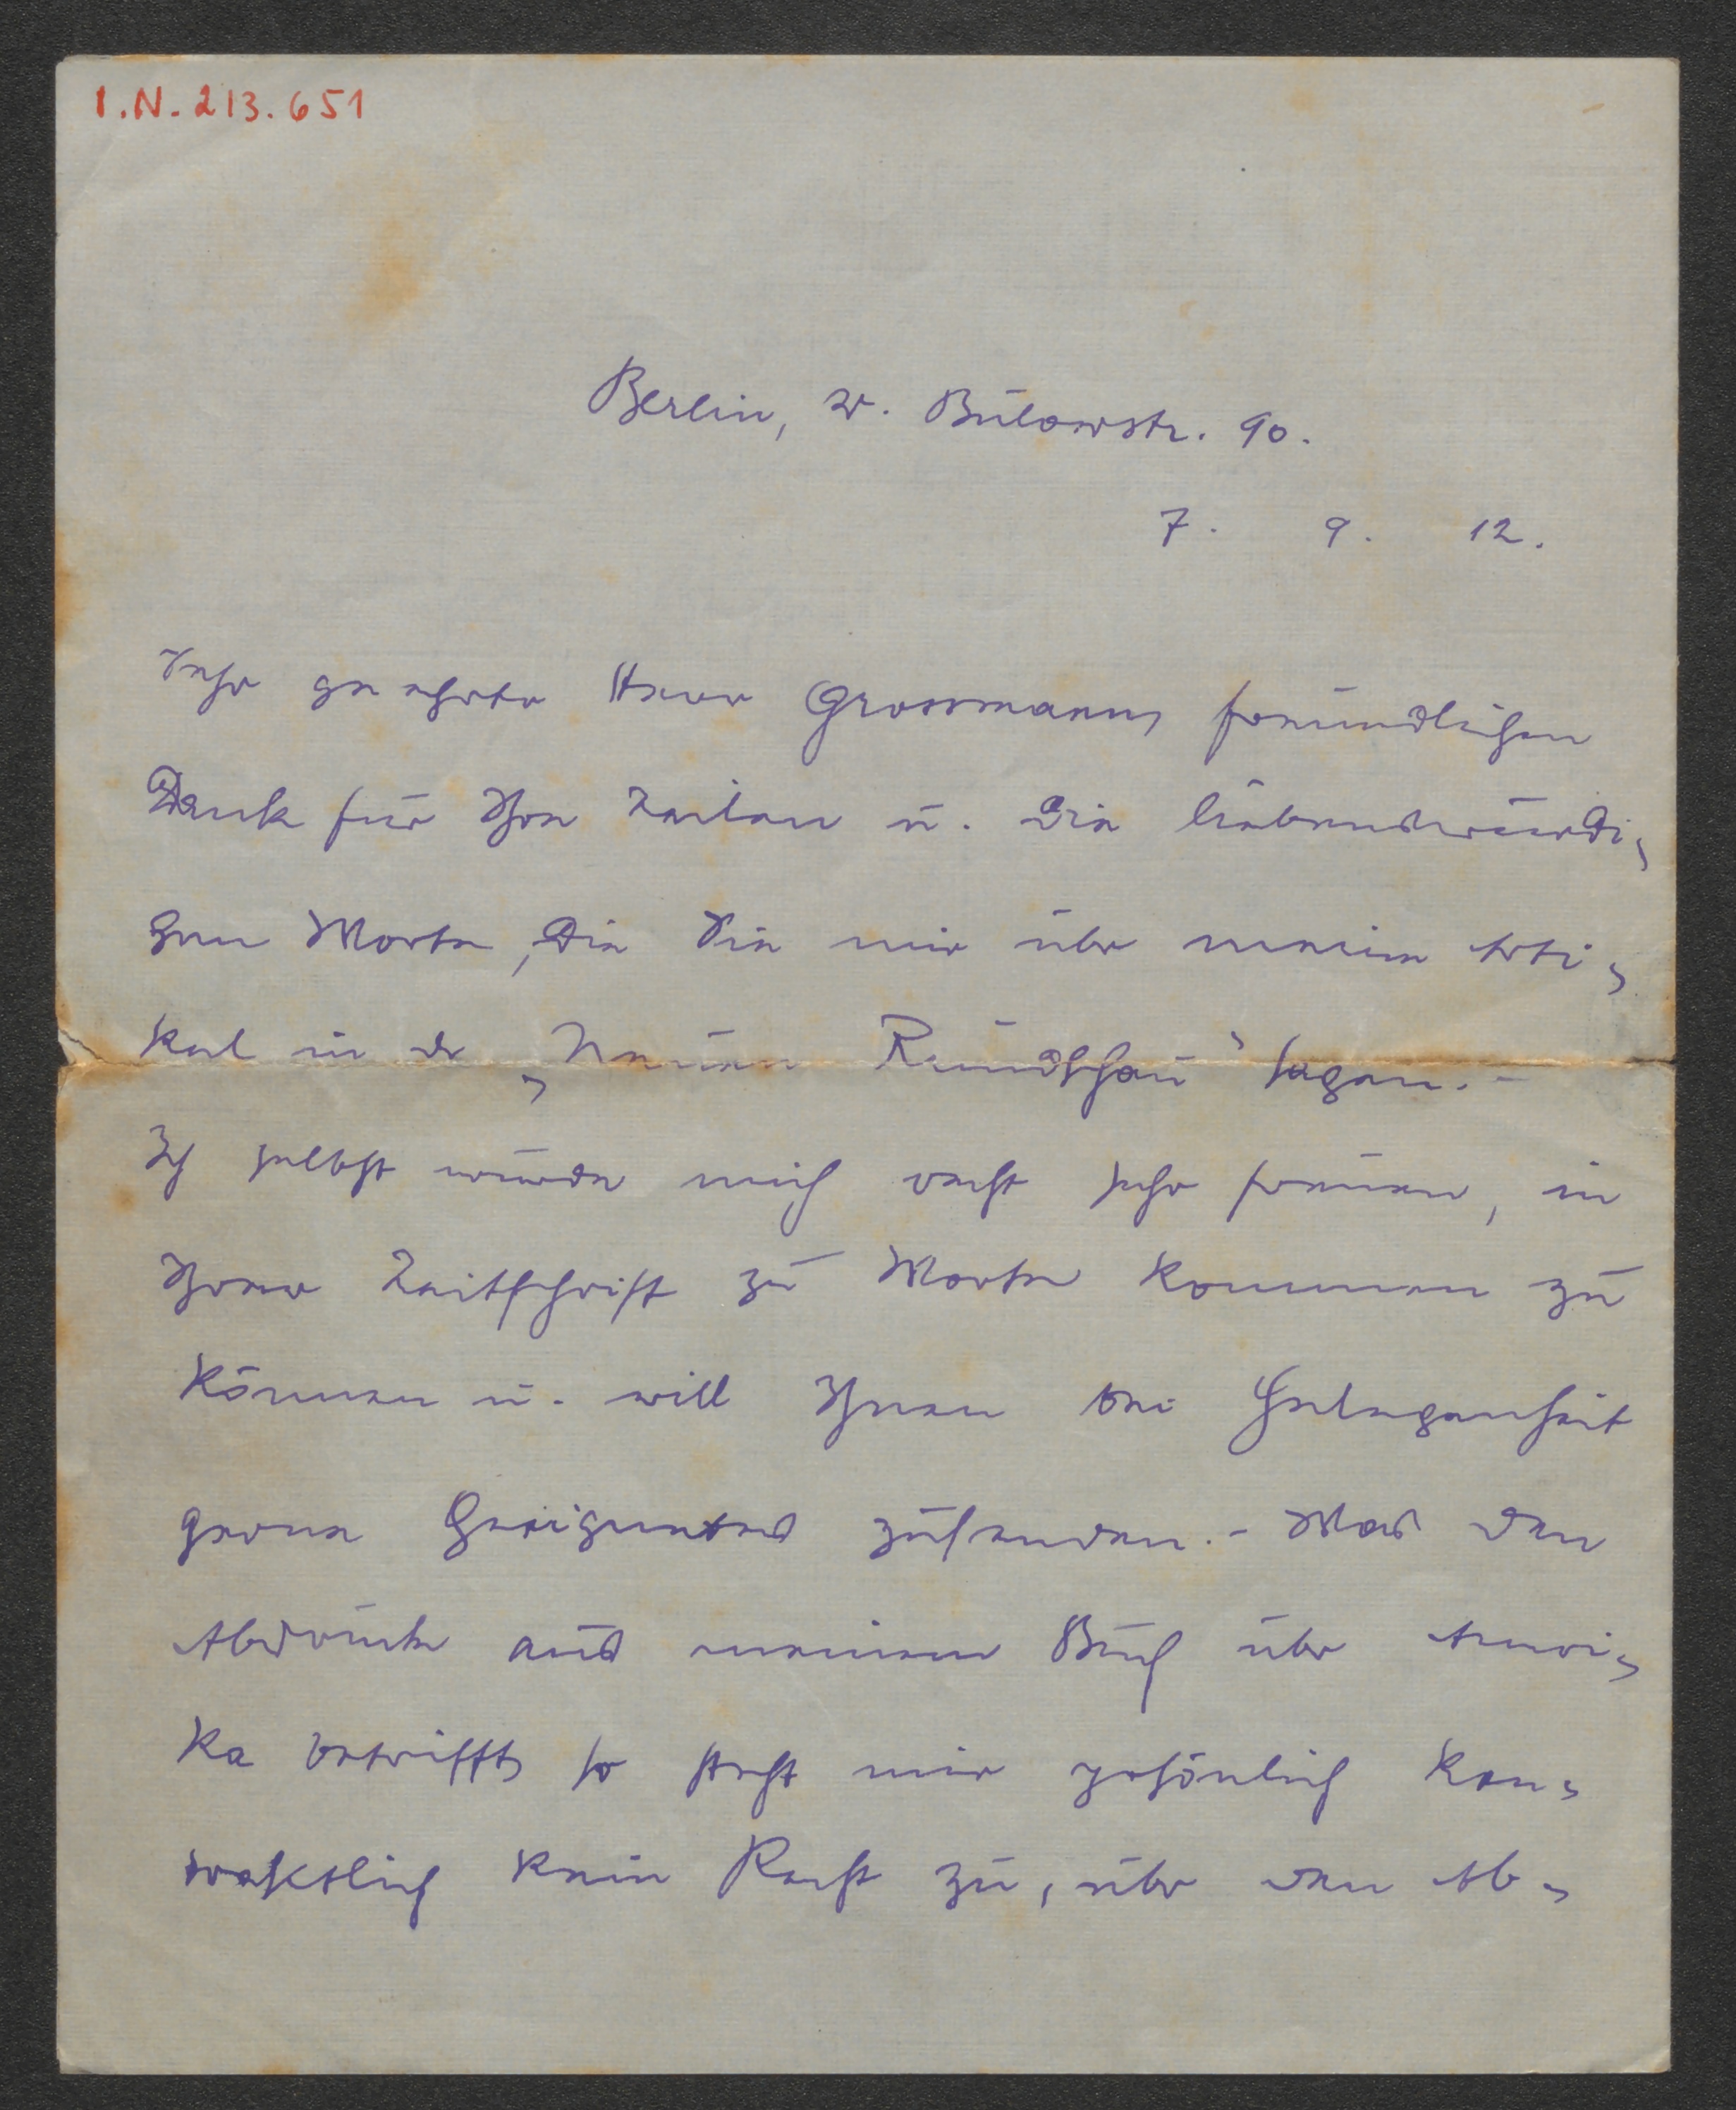 I.N. 213.651
Berlin, W. Bülowstr. 90.
7. 9. 12.
Sehr geehrter Herr Grossmann, freundlichen
Dank für Ihre Zeilen u. die liebenswürdi-
gen Worte, die Sie mir über meine Arti-
kel in der „Neuen Rundschau" sagen. -
Ich selbst würde mich recht sehr freuen, in
Ihrer Zeitschrift zu Worte kommen zu
können u. will Ihnen bei Gelegenheit
gerne Geeignetes zusenden. - Was den
Abdruck aus meinem Buch über Ameri-
ka betrifft, so steht mir persönlich kon-
traktlich kein Recht zu, über den Ab-